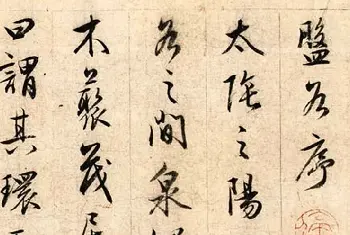 盤谷序
太之陽
谷之間泉
木藂茂居
曰謂其環